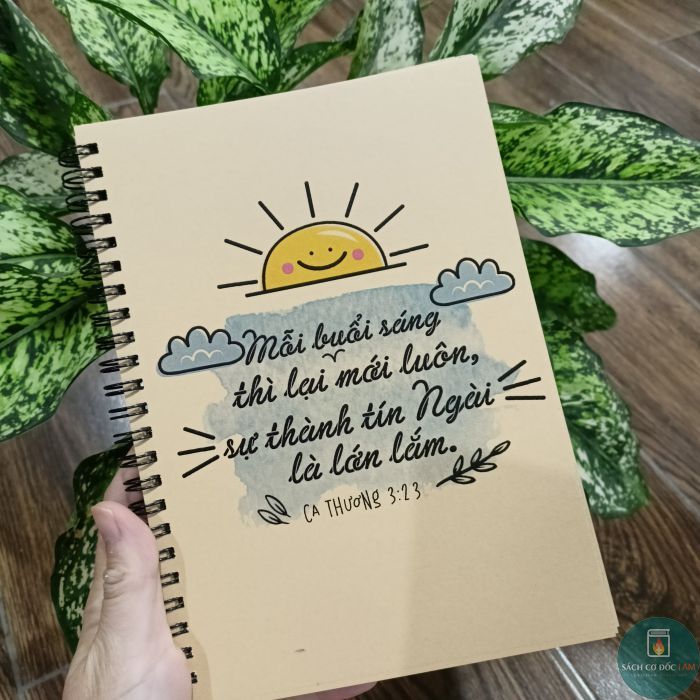 Mỗi buổi sáng
thì lại mới luôn,
sự thành tín Ngài
là lớn lắm.
CA THƯƠNG 3:23
SÁCH CƠ ĐỐC LAM